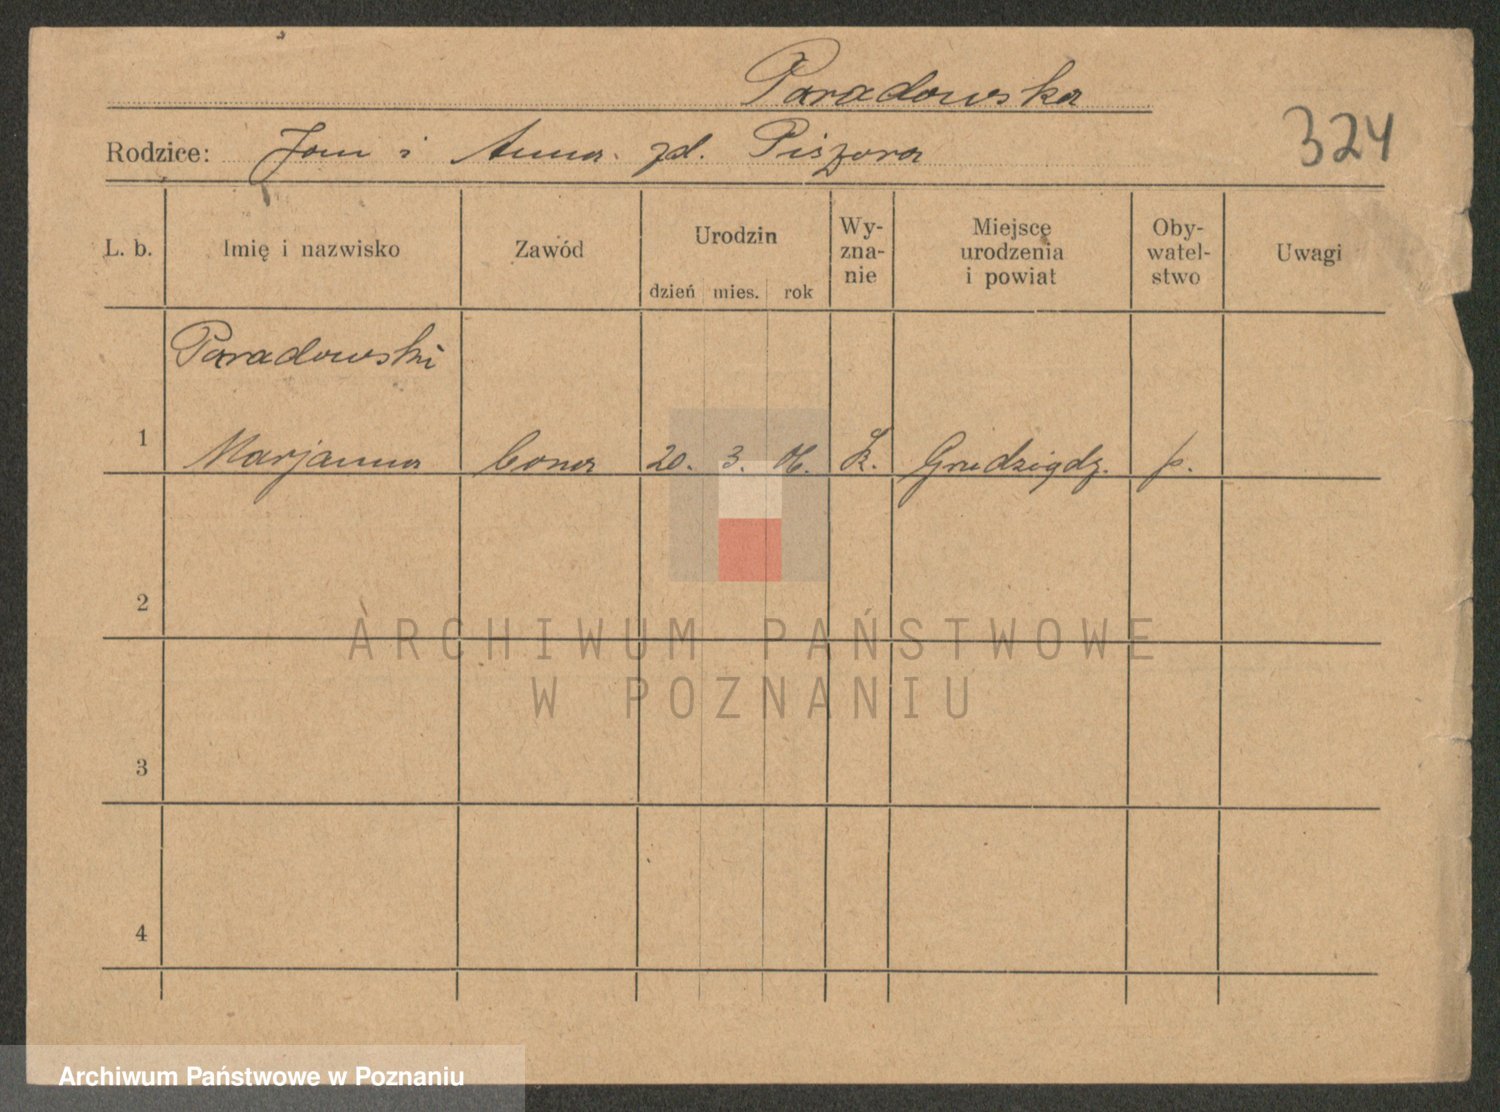 Paradowska
324
Rodzice: Jan i Anna zd. Piszora
L. b. Imię i nazwisko Zawód Urodzin Wy-zna-nie Miejsce urodzenia i powiat Oby-watel-stwo Uwagi
dzień mies. rok
Paradowski
1 Marjanna córa 20. 3. 06. k. Grudziądz. p.
2
ARCHIWUM PAŃSTWOWE
W POZNANIU
3
4
Archiwum Państwowe w Poznaniu